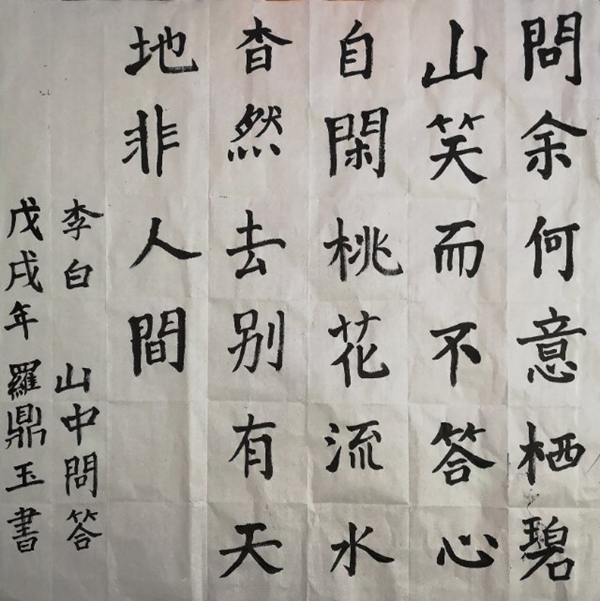 問余何意栖碧
山笑而不答心
自閑桃花流水
杳然去别有天
地非人間
李白 山中問答
戊戌年羅鼎玉書